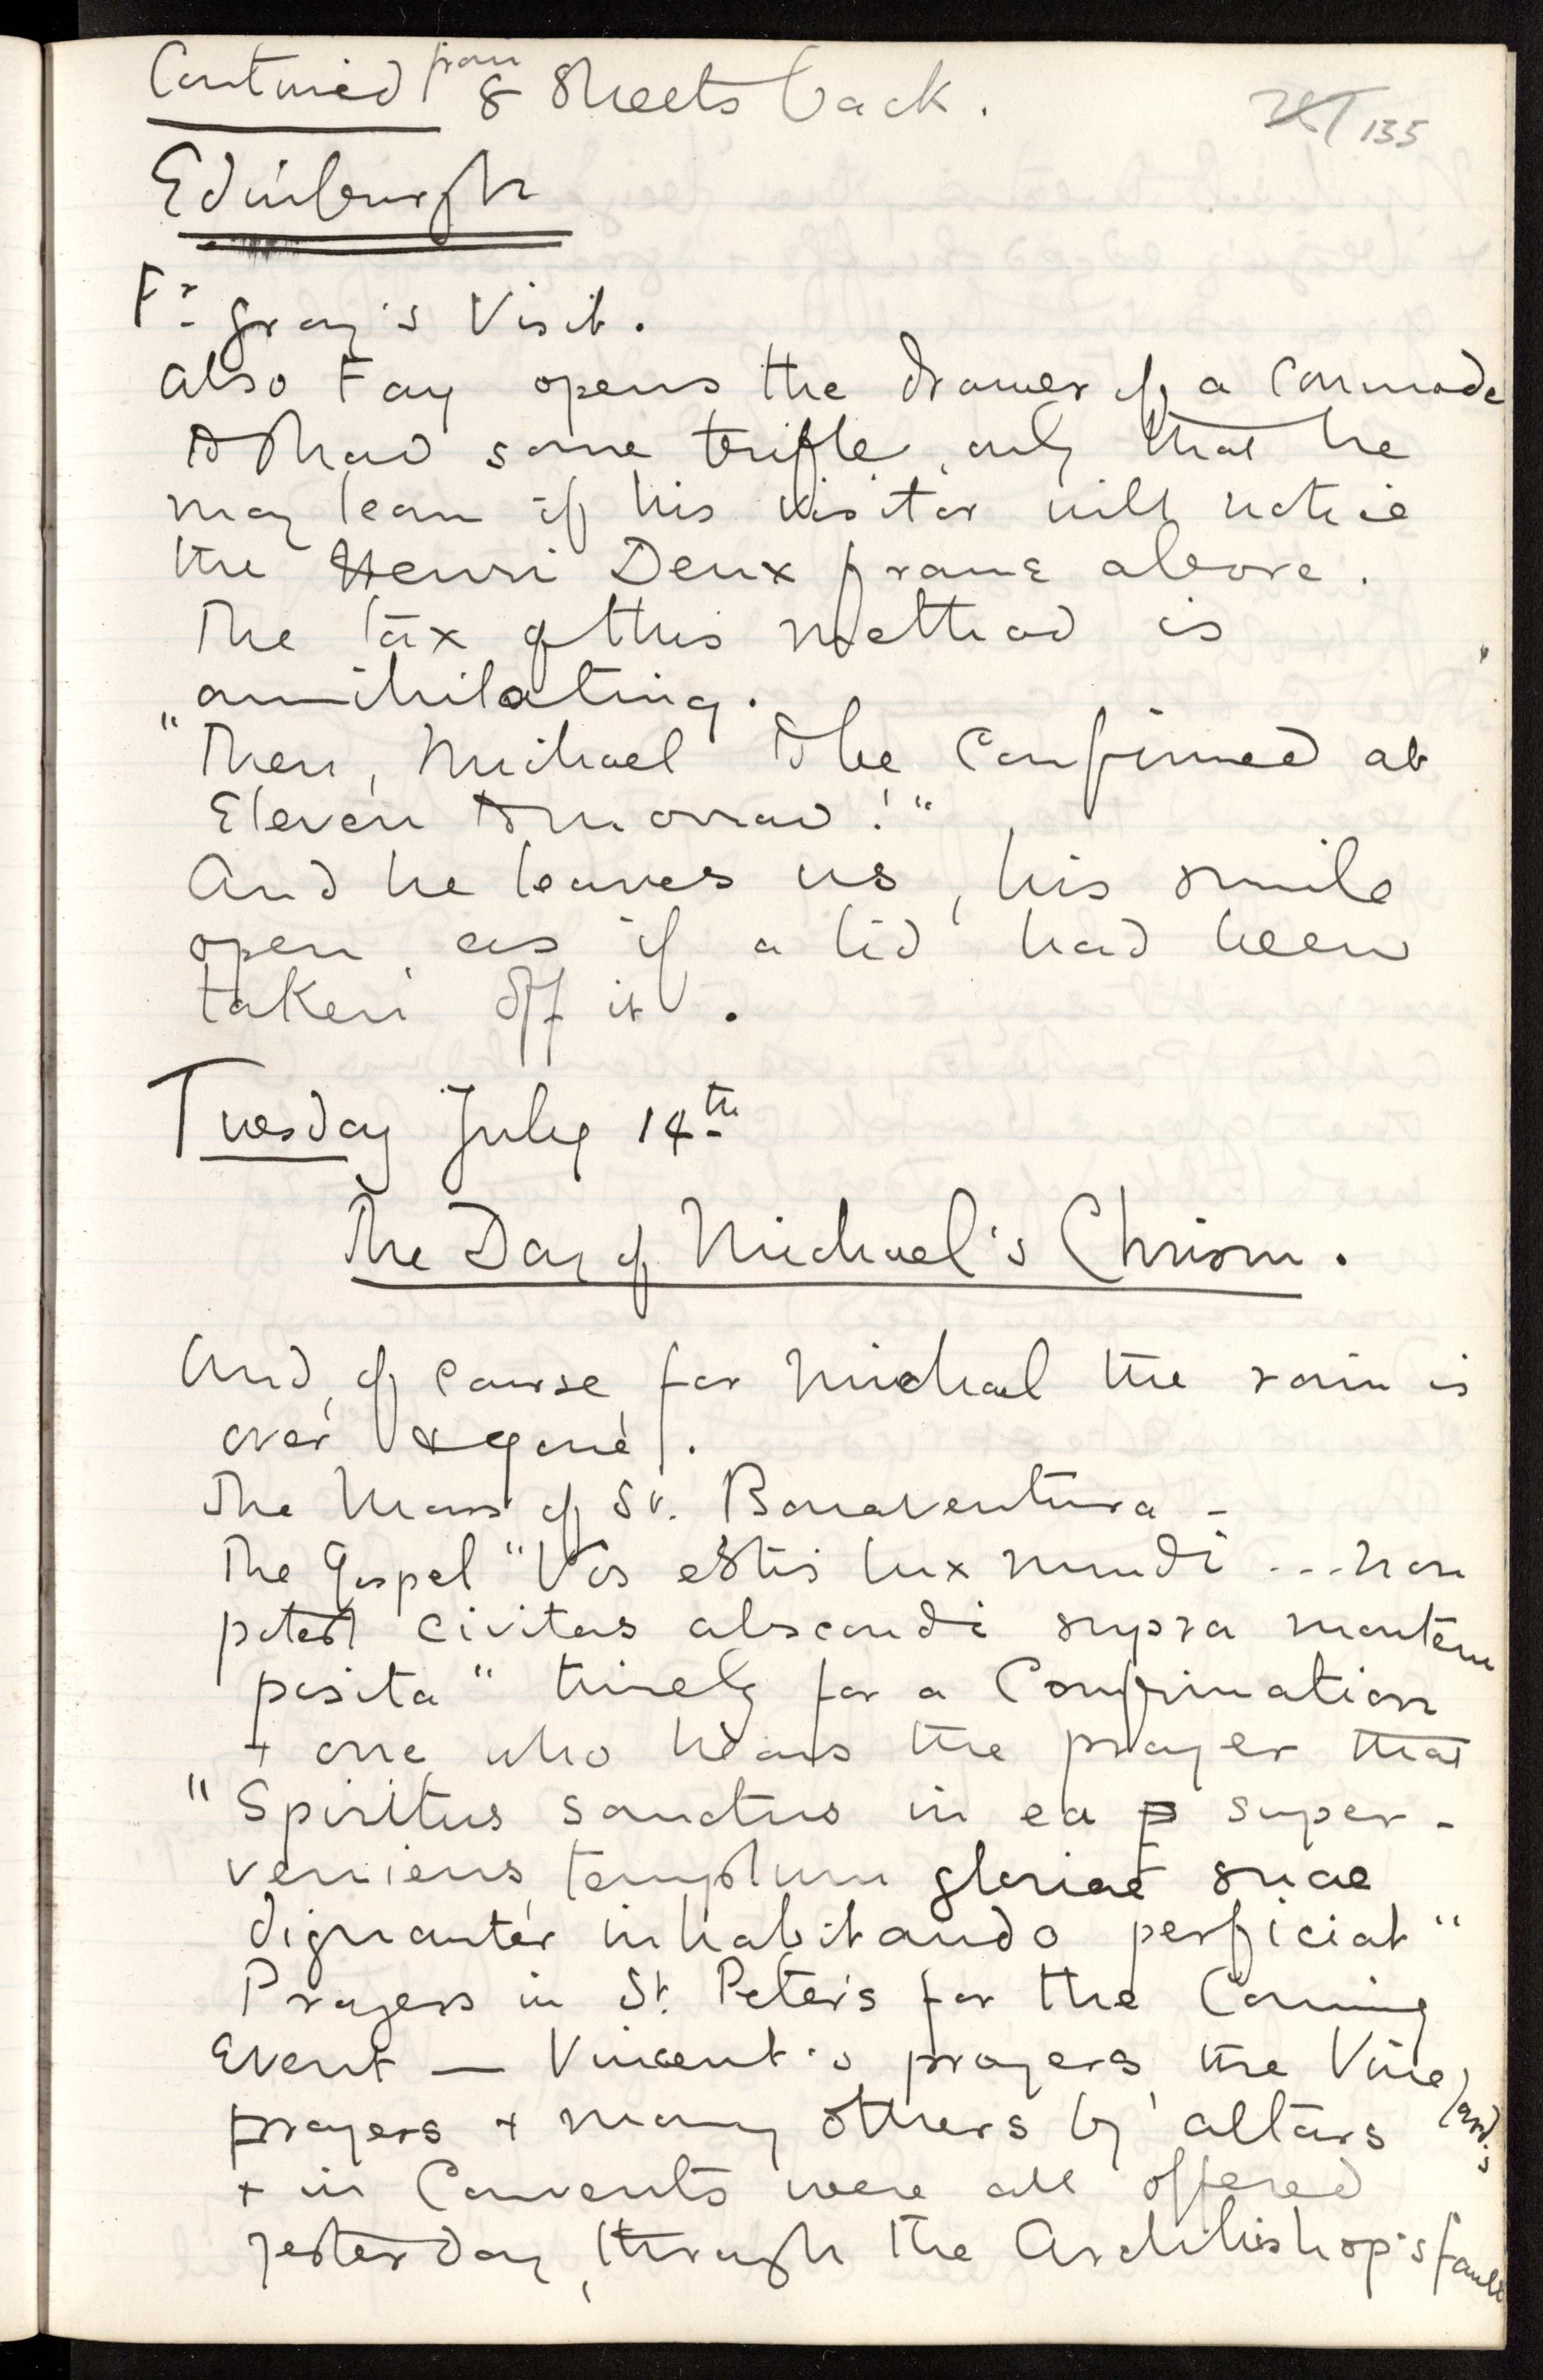 Continued from 8 Sheets back.
135
Edinburgh
Fr. Gray's Visit.
Also Fay opens the drawer of a Commode
to show some trifle, only that he
may learn if his visitor will notice
the Henri Deux frame above.
The tax of this method is
annihilating.
"Then, Michael to be Confirmed at
Eleven tomorrow!"
And he leaves us, his smile
open, as if a lid had been
taken off it.
Tuesday July 14th
The Day of Michael's Chrism.
And, of course, for Michael the rain is
over & gone.
The Mass of St. Bonaventura -
The Gospel "Vos estis lux mundi ... non
potest civitas abscondi supra montem
posita" timely for a Confirmation
+ one who hears the prayer that
"Spiritus sanctus in ea super-
veniens, templum gloriae suae
dignanter inhabitando perficiat"
Prayers in St. Peter's for the Coming
Event — Vincent's prayers, the Vineyard's
prayers + many others by altars
+ in Convents were all offered
yesterday, through the Archbishop's fault